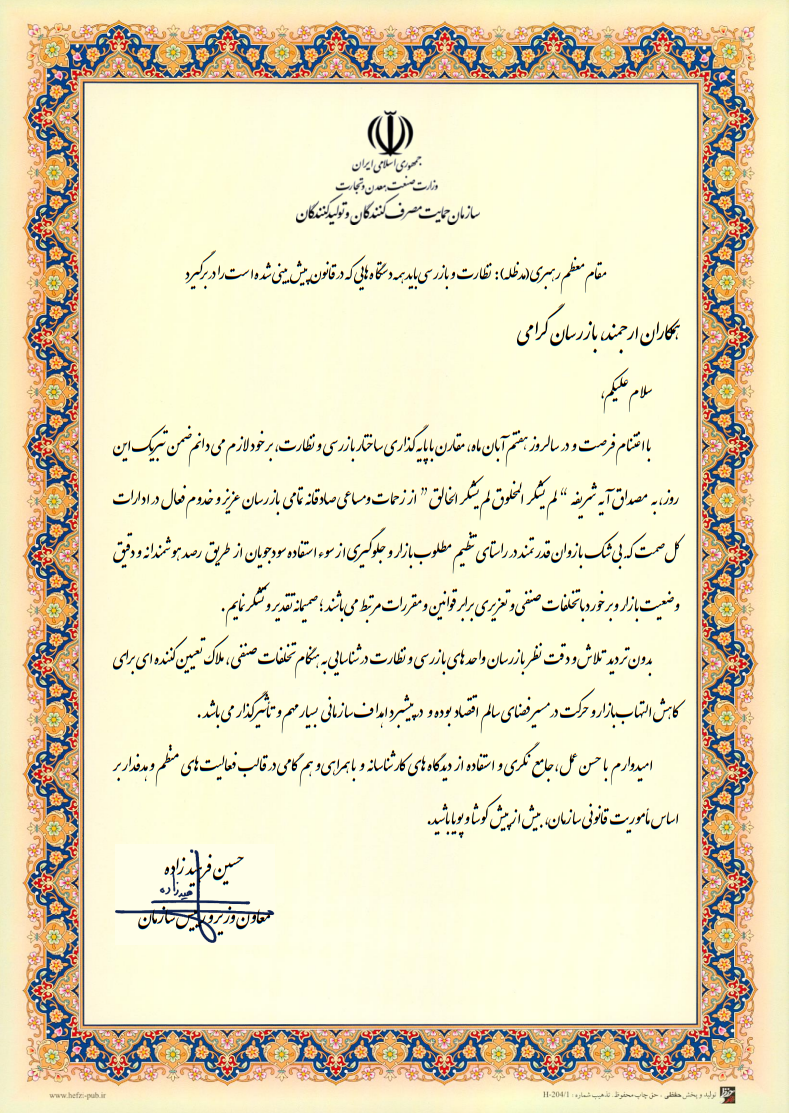 جمهوری اسلامی ایران
وزارت صنعت، معدن و تجارت
سازمان حمایت مصرف کنندگان و تولیدکنندگان
مقام معظم رهبری(مدظله): نظارت و بازرسی باید همه دستگاه هایی که در قانون پیش بینی شده است را در برگیرد
همکاران ارجمند، بازرسان گرامی
سلام علیکم،
با اغتنام فرصت و در سالروز هفتم آبان ماه، مقارن با پایه گذاری ساختار بازرسی و نظارت، بر خود لازم می دانم ضمن تبریک این
روز، به مصداق آیه شریفه “ لم یشکر المخلوق لم یشکر الخالق ” از زحمات و مساعی صادقانه تمامی بازرسان عزیز و خدوم فعال در ادارات
کل صمت که بی شک بازوان قدرتمند در راستای تنظیم مطلوب بازار و جلوگیری از سوء استفاده سودجویان از طریق رصد هوشمندانه و دقیق
وضعیت بازار و برخورد با تخلفات صنفی و تعزیری برابر قوانین و مقررات مرتبط می باشند ؛ صمیمانه تقدیر و تشکر نمایم .
بدون تردید تلاش و دقت نظر بازرسان واحد های بازرسی و نظارت در شناسایی به هنگام تخلفات صنفی ، ملاک تعیین کننده ای برای
کاهش التهاب بازار و حرکت در مسیر فضای سالم اقتصاد بوده و در پیشبرد اهداف سازمانی بسیار مهم و تأثیرگذار می باشد .
امیدوارم با حسن عمل ، جامع نگری و استفاده از دیدگاه های کارشناسانه و با همراهی و هم گامی در قالب فعالیت های منظم و هدفدار بر
اساس مأموریت قانونی سازمان، بیش از پیش کوشا و پویا باشید.
حسین فرهیدزاده
معاون وزیر و رییس سازمان
www.hefzi-pub.ir
تولید و پخش حفظی - حق چاپ محفوظ. تذهیب شماره : H-204/1